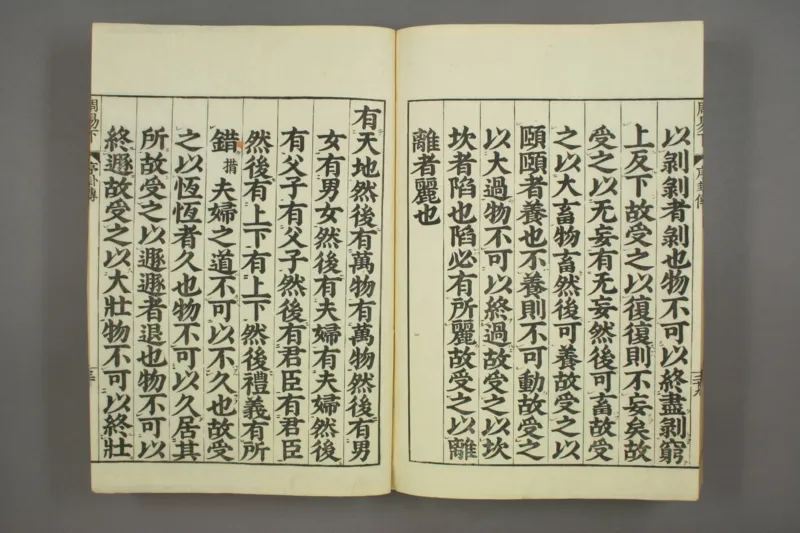 以剝剝者剝也物不可以終盡剝窮
上反下故受之以復復則不妄矣故
受之以无妄有无妄然後可畜故受
之以大畜物畜然後可養故受之以
頤頤者養也不養則不可動故受之
以大過物不可以終過故受之以坎
坎者陷也陷必有所麗故受之以離
離者麗也
有天地然後有萬物有萬物然後有男
女有男女然後有夫婦有夫婦然後
有父子有父子然後有君臣有君臣
然後有上下有上下然後禮義有所
錯 措 夫婦之道不可以不久也故受
之以恆恆者久也物不可以久居其
所故受之以遯遯者退也物不可以
終遯故受之以大壯物不可以終壯
周易下 序卦傳